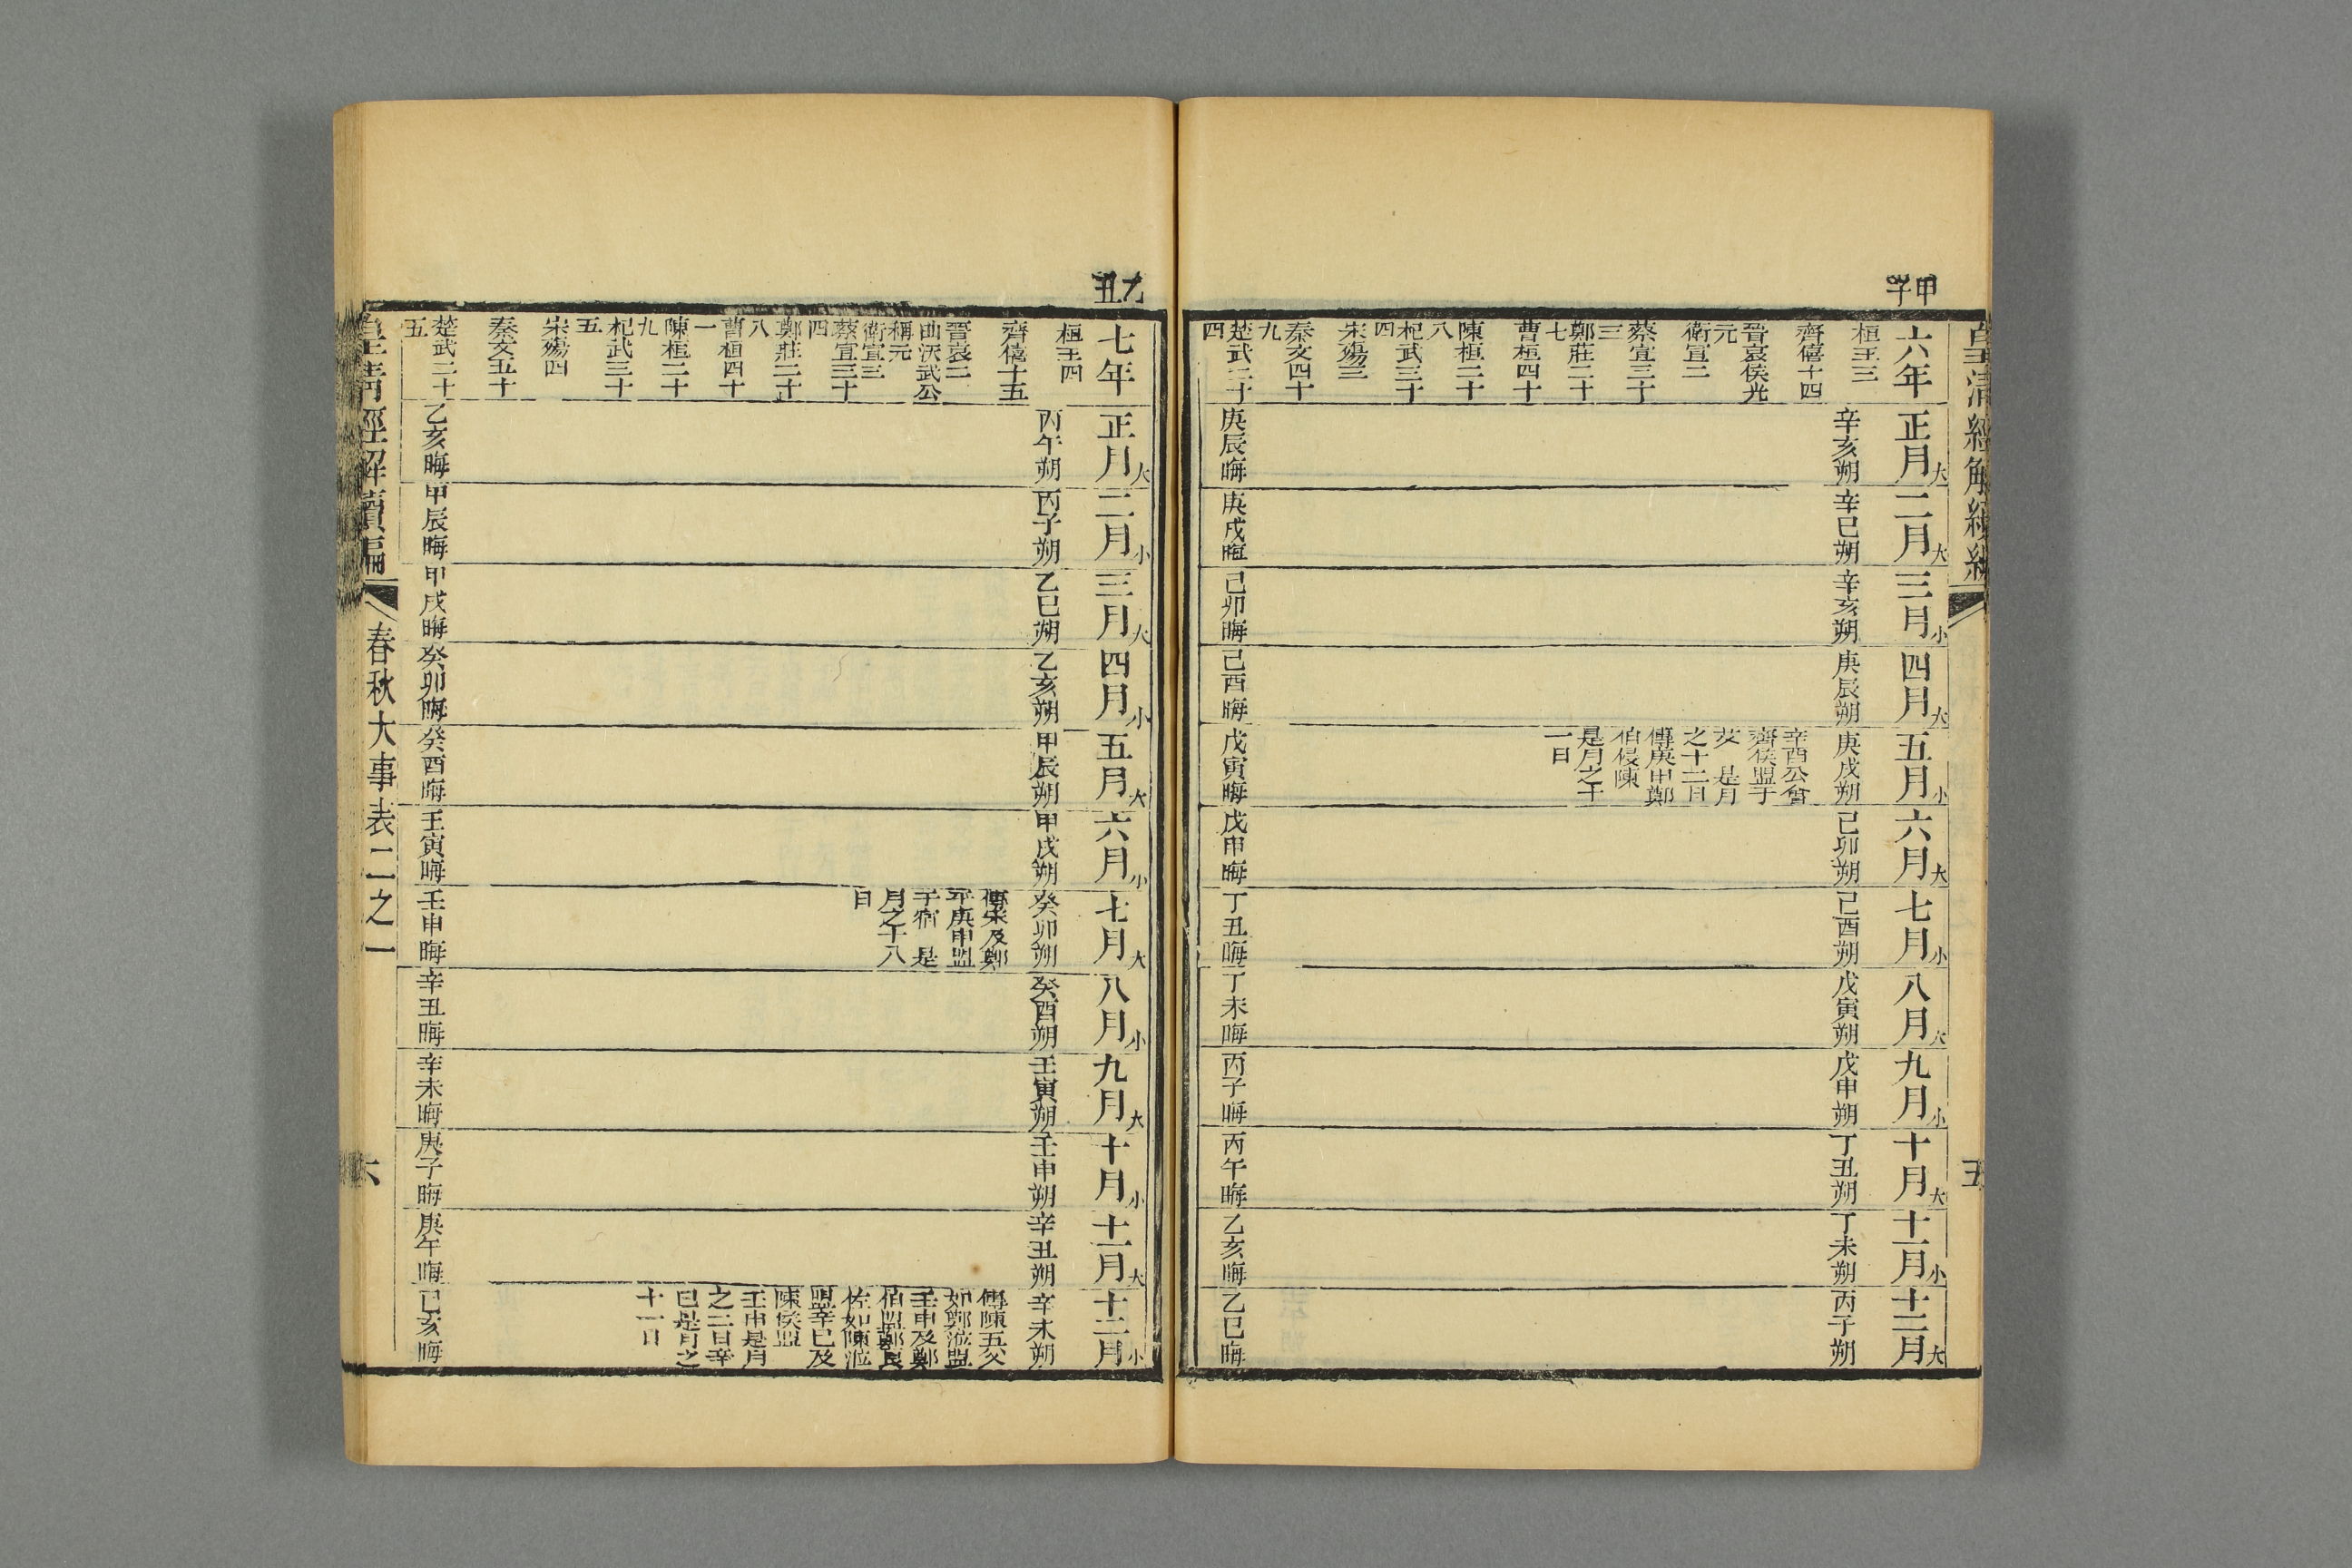 皇清經解續編
五
甲子
六年
桓王三
齊僖十四
晉哀侯光
元
衛宣二
蔡宣三十
三
鄭莊二十
七
曹桓四十
陳桓二十
八
杞武三十
四
宋殤三
秦文四十
九
楚武二十
四
正月大
辛亥朔
庚辰晦
二月大
辛巳朔
庚戌晦
三月小
辛亥朔
己卯晦
四月大
庚辰朔
己酉晦
五月小
庚戌朔
辛酉公會
齊侯盟于
艾 是月
之十二日
傳庚申鄭
伯侵陳
是月之十
一日
戊寅晦
六月大
己卯朔
戊申晦
七月小
己酉朔
丁丑晦
八月大
戊寅朔
丁未晦
九月小
戊申朔
丙子晦
十月大
丁丑朔
丙午晦
十一月小
丁未朔
乙亥晦
十二月大
丙子朔
乙巳晦
乙丑
七年
桓王四
齊僖十五
晉哀二
曲沃武公
稱元
衛宣三
蔡宣三十
四
鄭莊二十
八
曹桓四十
一
陳桓二十
九
杞武三十
五
宋殤四
秦文五十
楚武二十
五
正月大
丙午朔
乙亥晦
二月小
丙子朔
甲辰晦
三月大
乙巳朔
甲戌晦
四月小
乙亥朔
癸卯晦
五月大
甲辰朔
癸酉晦
六月小
甲戌朔
壬寅晦
七月大
癸卯朔
傳宋及鄭
平庚申盟
于宿 是
月之十八
日
壬申晦
八月小
癸酉朔
辛丑晦
九月大
壬寅朔
辛未晦
十月小
壬申朔
庚子晦
十一月大
辛丑朔
庚午晦
十二月小
辛未朔
傳陳五父
如鄭涖盟
壬申及鄭
伯盟鄭良
佐如陳涖
盟辛巳及
陳侯盟
壬申是月
之二日辛
巳是月之
十一日
己亥晦
皇清經解續編
春秋大事表二之一
六